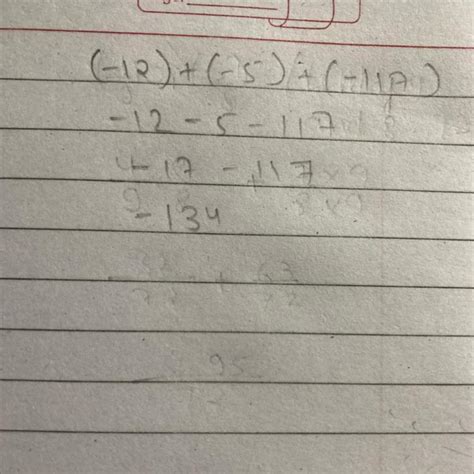 (-12) + (-5) + (-117)
-12 - 5 - 117
-17 - 117
-134
95